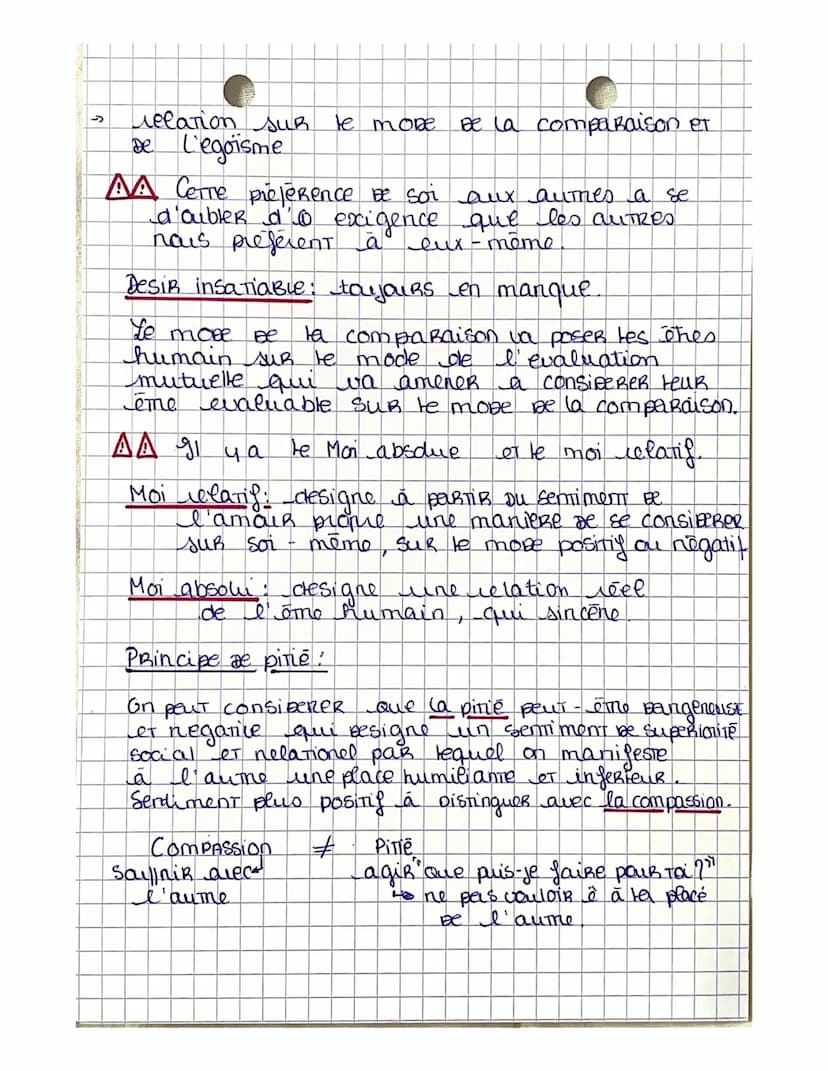 → relation sur le mode de la comparaison et
de l'egoïsme
⚠⚠ Cette préférence de soi aux autres a se
d'oubler d'1 exigence que les autres
nous préfèrent à eux-même.
Desir insatiable : toujours en manque.
Le mode de la comparaison va poser les êtres
humain sur le mode de l'évaluation
mutuelle qui va amener a considerer leur
être evaluable sur le mode de la comparaison.
⚠⚠ Il y a le Moi absolue et le moi relatif.
Moi relatif : designe à partir du sentiment de
l'amour propre une manière de se considerer
sur soi-même, sur le mode positif ou négatif
Moi absolu : designe une relation réel
de l'être humain, qui sincère.
Principe de pitié :
On peut considerer que la pitié peut-être dangereuse
et negative qui designe un sentiment de supériorité
social et relationel par lequel on manifeste
à l'autre une place humiliante et inférieur.
Sentiment plus positif à distinguer avec la compassion.
Compassion ≠ Pitié
Souffrir avec agir "que puis-je faire pour toi ?"
l'autre ↳ ne pas vouloir ê à la place
de l'autre.